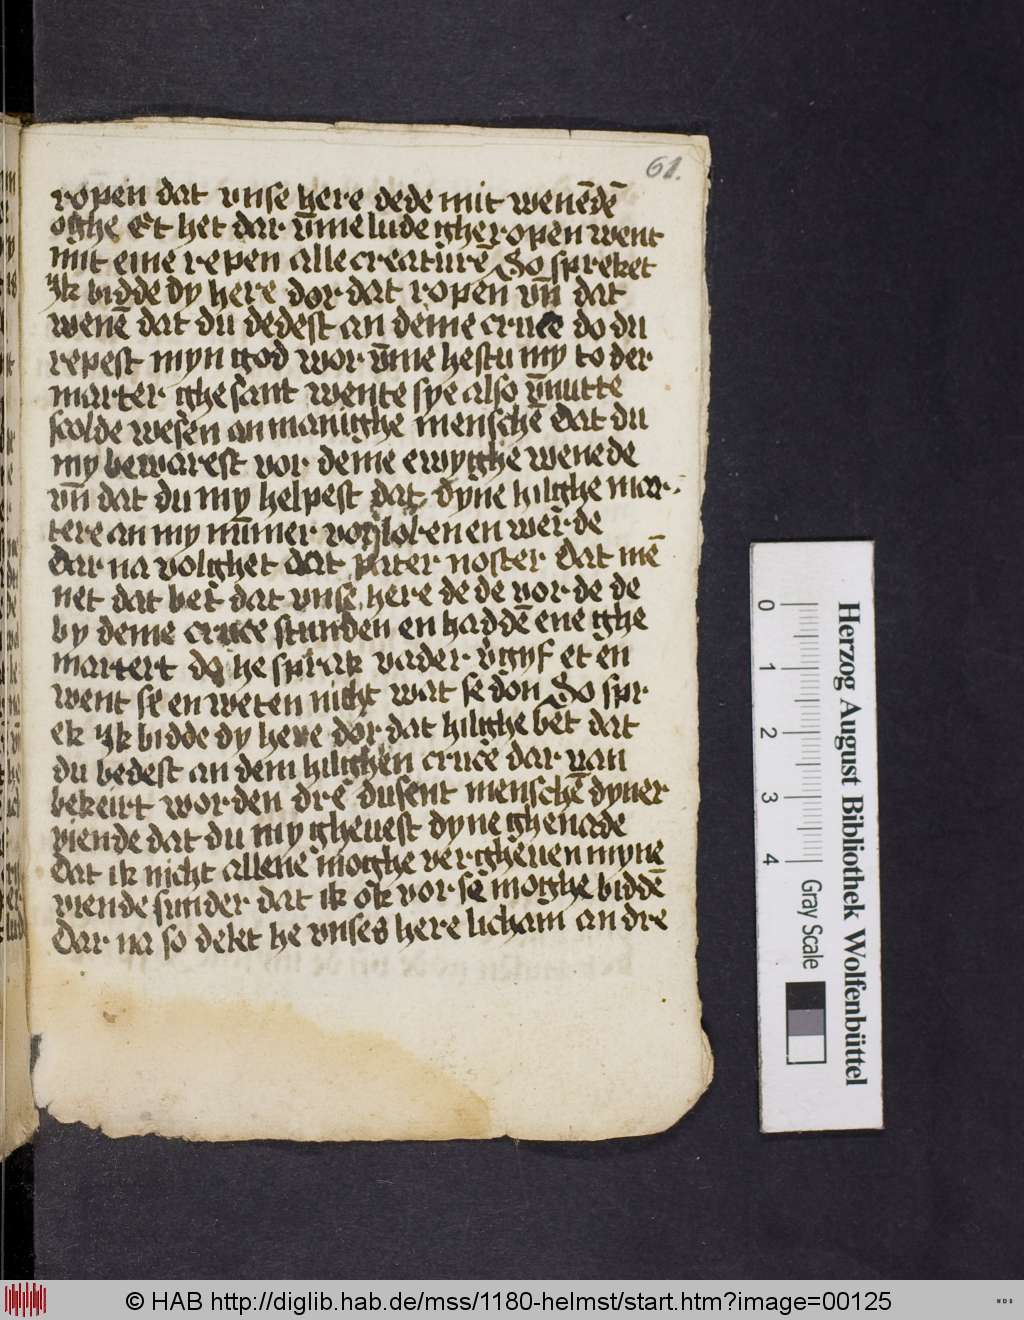 61.
ropen dat vnse here dede mit wenēdē
oghe Et het dar v̄me lude gheropen went
mit eine repen alle creaturē So spreket
Jk bidde dy here dor dat ropen vn̄ dat
wenē dat du dedest an deme cruce do du
repest myn god wor v̄me hestu my to der
marter ghesant wente sye also v̄nutte
scolde wesen an manighe menschē Dat du
my bewarest vor deme ewyghe wenede
vn̄ dat du my helpest dat dyne hilghe mar
tere an my nūmer vorloben en werde
Dar na volghet dat pater noster Dat mē
net dat bet dat vnse here dede vor de de
by deme cruce stunden en haddē ene ghe
martert do he sprak vader v̄gyf et en
went se en weten nicht wat se don So spr
ek Jk bidde dy here dor dat hilghe bet dat
du bedest an dem hilghen cruce dar van
bekeirt worden dre dusent menschē dyner
viende dat du my gheuest dyne ghenade
Dat ik nicht allene moghe vergheuen myne
viende sunder dat ik ok vor se moghe biddē
Dar na so delet he vnses here licham an dre
Herzog August Bibliothek Wolfenbüttel
0 1 2 3 4 Gray Scale
© HAB http://diglib.hab.de/mss/1180-helmst/start.htm?image=00125